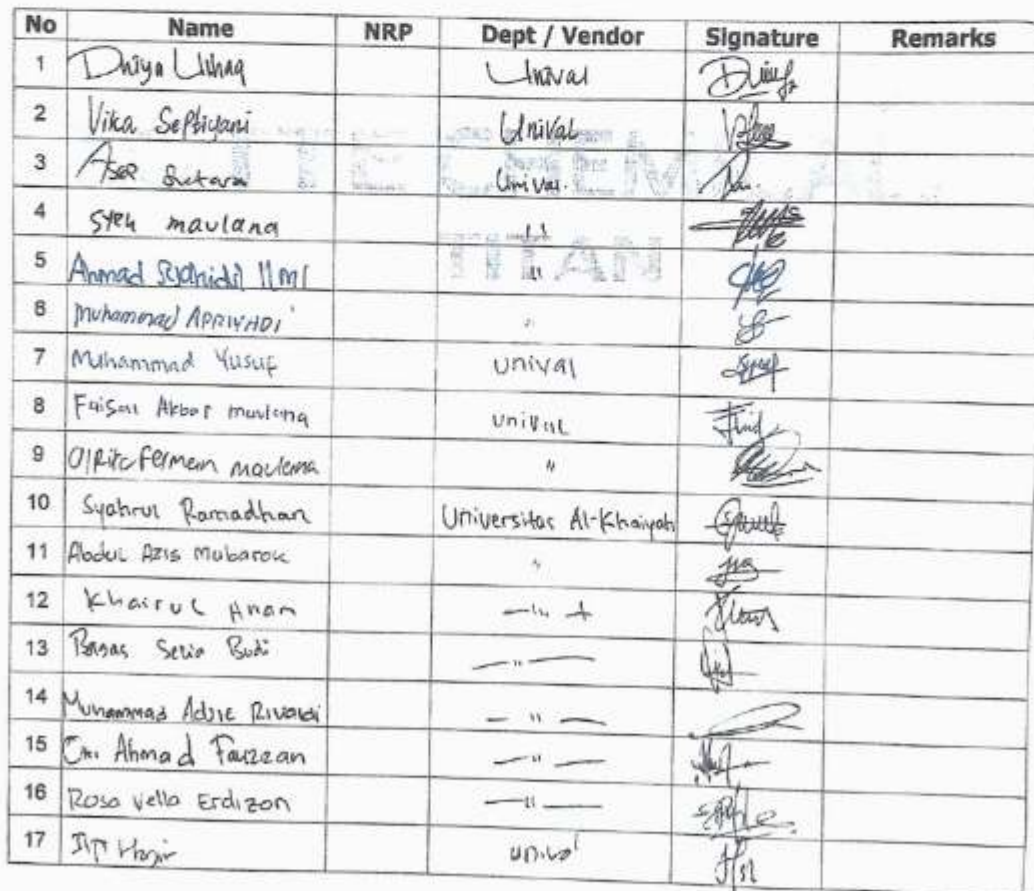 No Name NRP Dept / Vendor Signature Remarks
1 Dhiya Ulhaq Unival
2 Vika Septiyani Unival
3 Asep Unival.
4 Syeh maulana "
5 Ahmad Syahidil Ilmi "
6 Muhammad APRIYADI "
7 Muhammad Yusuf unival
8 Faisal Akbar maulana unival
9 maulana "
10 Syahrul Ramadhan Universitas Al-Khaiyah
11 Abdul Azis Mubarok "
12 Khairul Anam — " —
13 Bagas Setia Budi — " —
14 Muhammad Adjie Rivaldi — " —
15 Ahmad Fauzan — " —
16 Rosa vella Erdizon — " —
17 unival